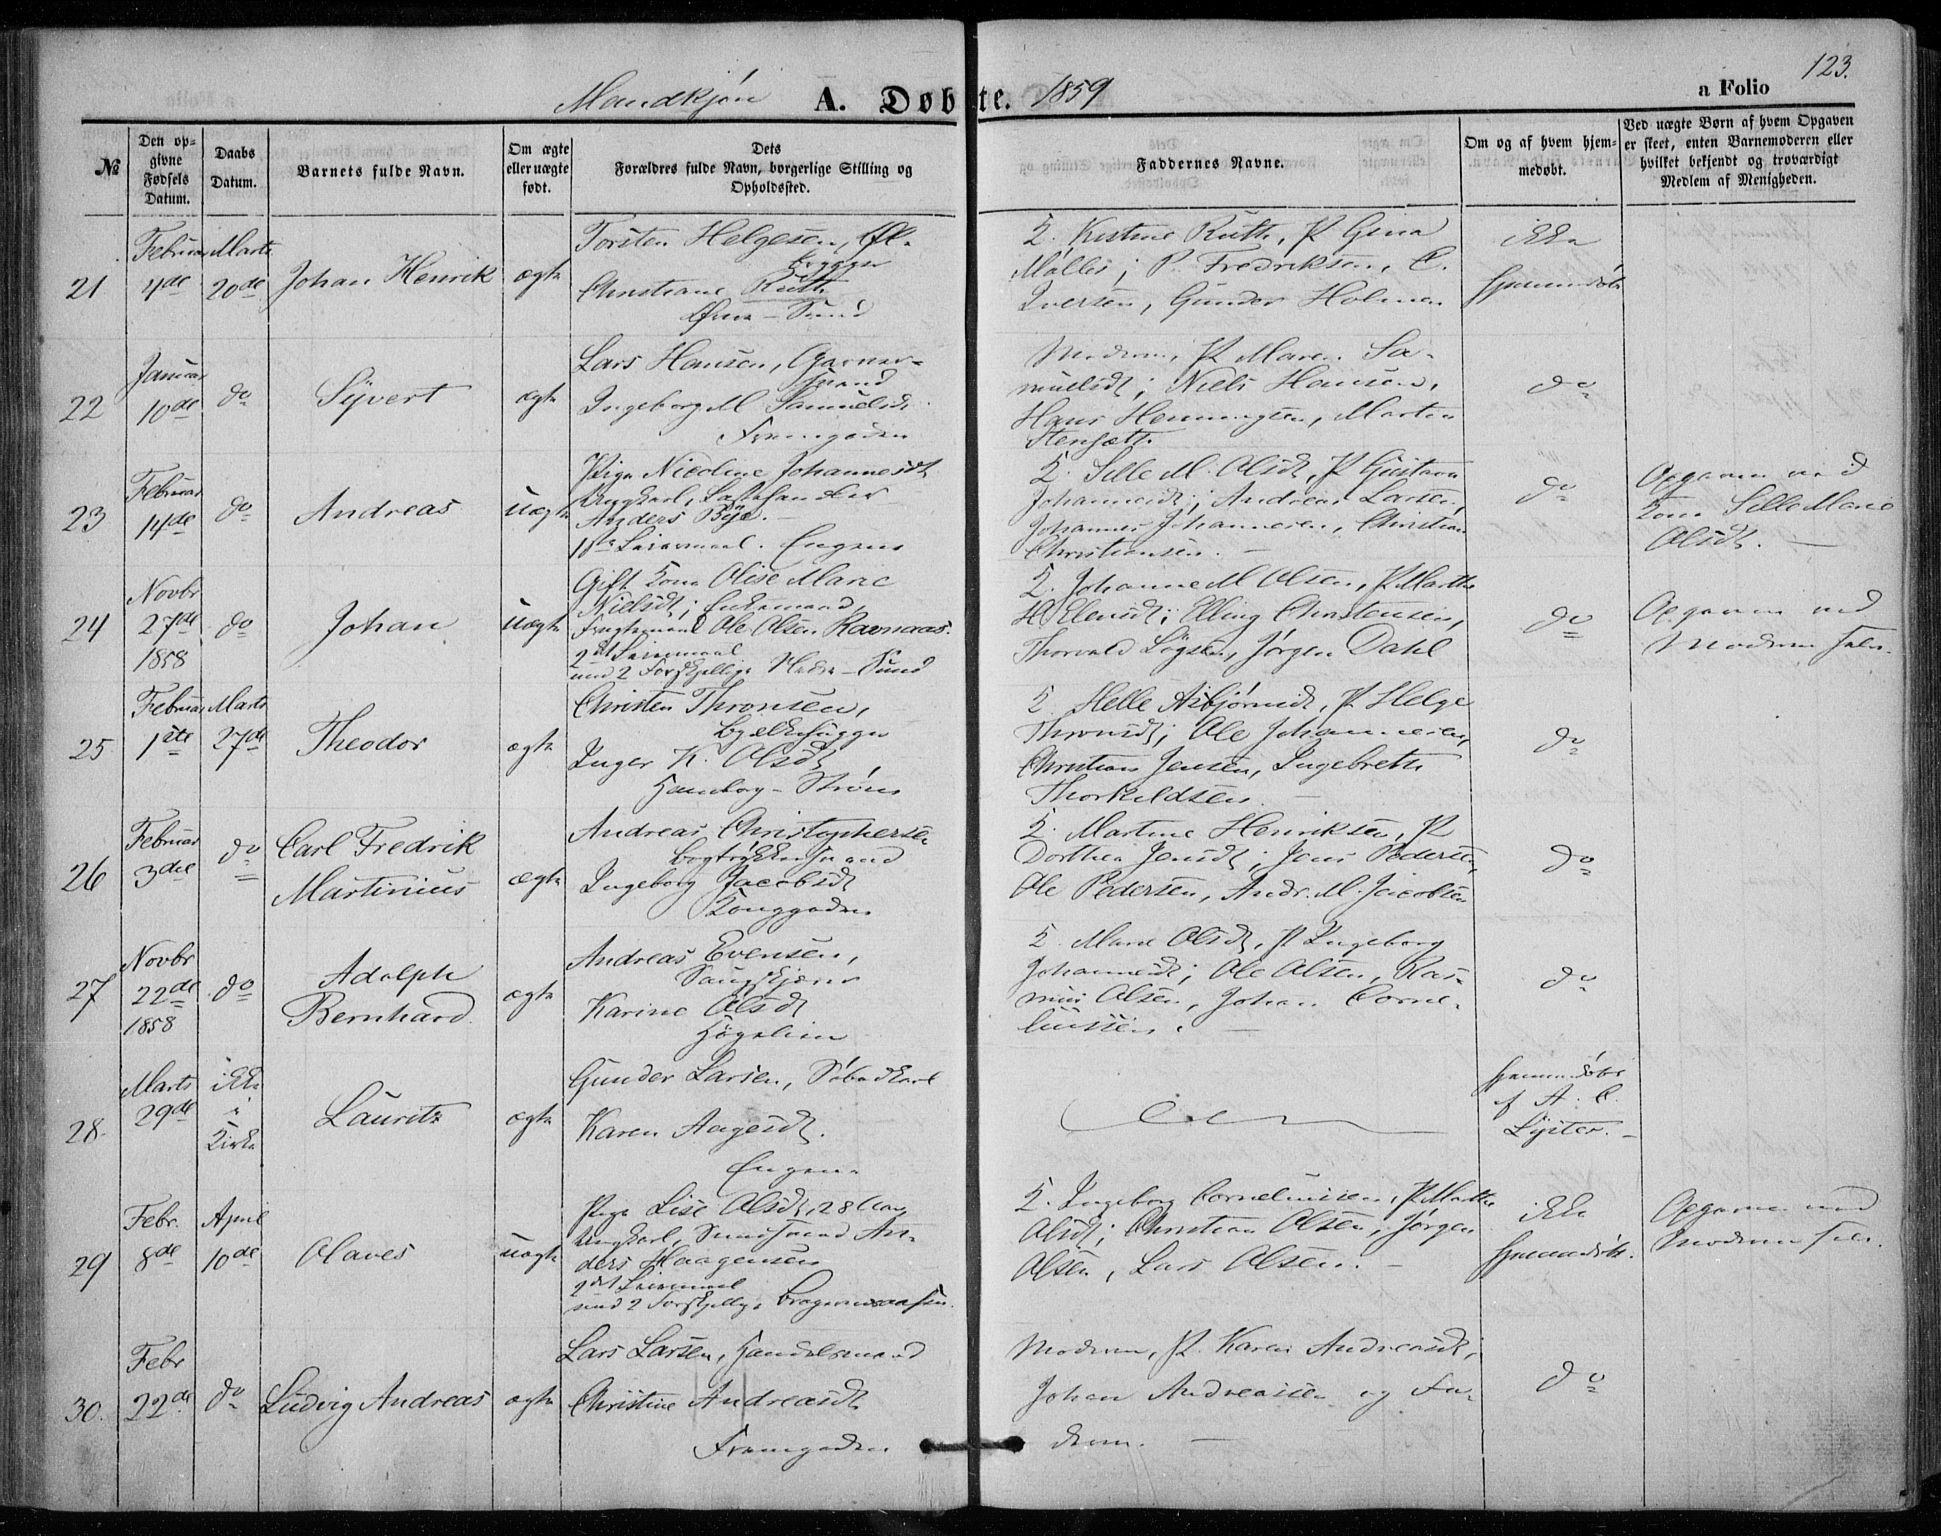 Mandkjøn A. Døbte. 1859
a Folio 123.
№
Den opgivne Fødsels Datum.
Daabs Datum.
Barnets fulde Navn.
Om ægte eller uægte født.
Dets Forældres fulde Navn, borgerlige Stilling og Opholdssted.
Faddernes Navne.
Om og af hvem hjemmedøbt.
Ved uægte Børn af hvem Opgaven er skeet, enten Barnemoderen eller hvilket bekjendt og troværdigt Medlem af Menigheden.
21
Februar
4de
Marts
20de
Johan Henrik
ægte
Torsten Helgesen, Øl-
brygger
Christiane Ruth
Øvre-Sund
K. Kistine Ruth, P Gina
Møller; P. Fredriksen, C.
Iversen, Gunder Holmen
ikke
hjemmedøbt
22
Januar
10de
do
Syvert
ægte
Lars Hansen, Garver-
svend
Ingeborg M Samuelsdt.
Fremgaden
Moderen, P Maren Sa-
muelsdt; Niels Hansen,
Hans Henningsen, Martin
Stensæth
do
23
Februar
14de
do
Andreas
uægte
Pige Nicoline Johannesdt
Ungkarl,
Anders Bye.
1ste Leiermaal. Engene
K. Sille M. Olsdt, P Gustava
Johannesdt; Andreas Larsen,
Johannes Johannesen, Christian
Christiansen.
do
Opgaven ved
Kone Sille Marie
Olsdt.
24
Novbr
27de
1858
do
Johan
uægte
Gift Kone Olise Marie
Nielsdt; Enkemand,
Ole Olsen Ravnaas.
2det Leiermaal
med 2 Forskjellige Nedre-Sund
K. Johanne M Olsen, P Marthe
H Elensdt; Elling Christensen,
Thorvald Løgsten, Jørgen Dahl
do
Opgaven ved
Moderen selv.
25
Februar
1ste
Marts
27de
Theodor
ægte
Christen Thronsen,
Bjelkehugger
Inger K. Olsdt,
Hamborg-Strøm
K. Helle Asbjørnsdt, P. Helge
Thronsdt; Ole Johannesen,
Christian Jensen, Ingebreth
Thorkildsen.
do
26
Februar
3die
do
Carl Fredrik
Martinius
ægte
Andreas Christophersen
Bogtrykkersvend
Ingeborg Jacobsdt
Konggaden
K. Martine Henriksen, P
Dorthea Jensdt; Jens Pedersen,
Ole Pedersen, Andr. M. Jacobsen
do
27
Novbr
22de
1858
do
Adolph
Bernhard
ægte
Andreas Evensen,
Saugskjærer
Karine Olsdt
Høgelien
K. Marie Olsdt, P Ingeborg
Johannesdt; Ole Olsen, Ras-
mus Olsen, Johan Corne-
liussen.
do
28.
Marts
29de
ikke
i
Kirke
Lauritz
ægte
Gunder Larsen,
Karen Aagesdt.
Engene
hjemmedøbt
af A. C.
Lyster.
29
Febr.
8de
April
10de
Olaves
uægte
Pige Lise Olsdt, 28 Aar
Ungkarl, An-
ders Haagensen
2det Leiermaal
med 2 Forskjellige Bragernæsaasen.
K. Ingeborg Corneliussen, P. Marthe
Olsdt; Christian Olsen, Jørgen
Olsen, Lars Olsen.
ikke
hjemmedøbt.
Opgaven ved
Moderen selv.
30.
Febr
22de
do
Ludvig Andreas
ægte
Lars Larsen, Handelsmand
Christine Andreasdt
Fremgaden
Moderen, P. Karen Andreasdt;
Johan Andreassen og Fa-
deren.
do